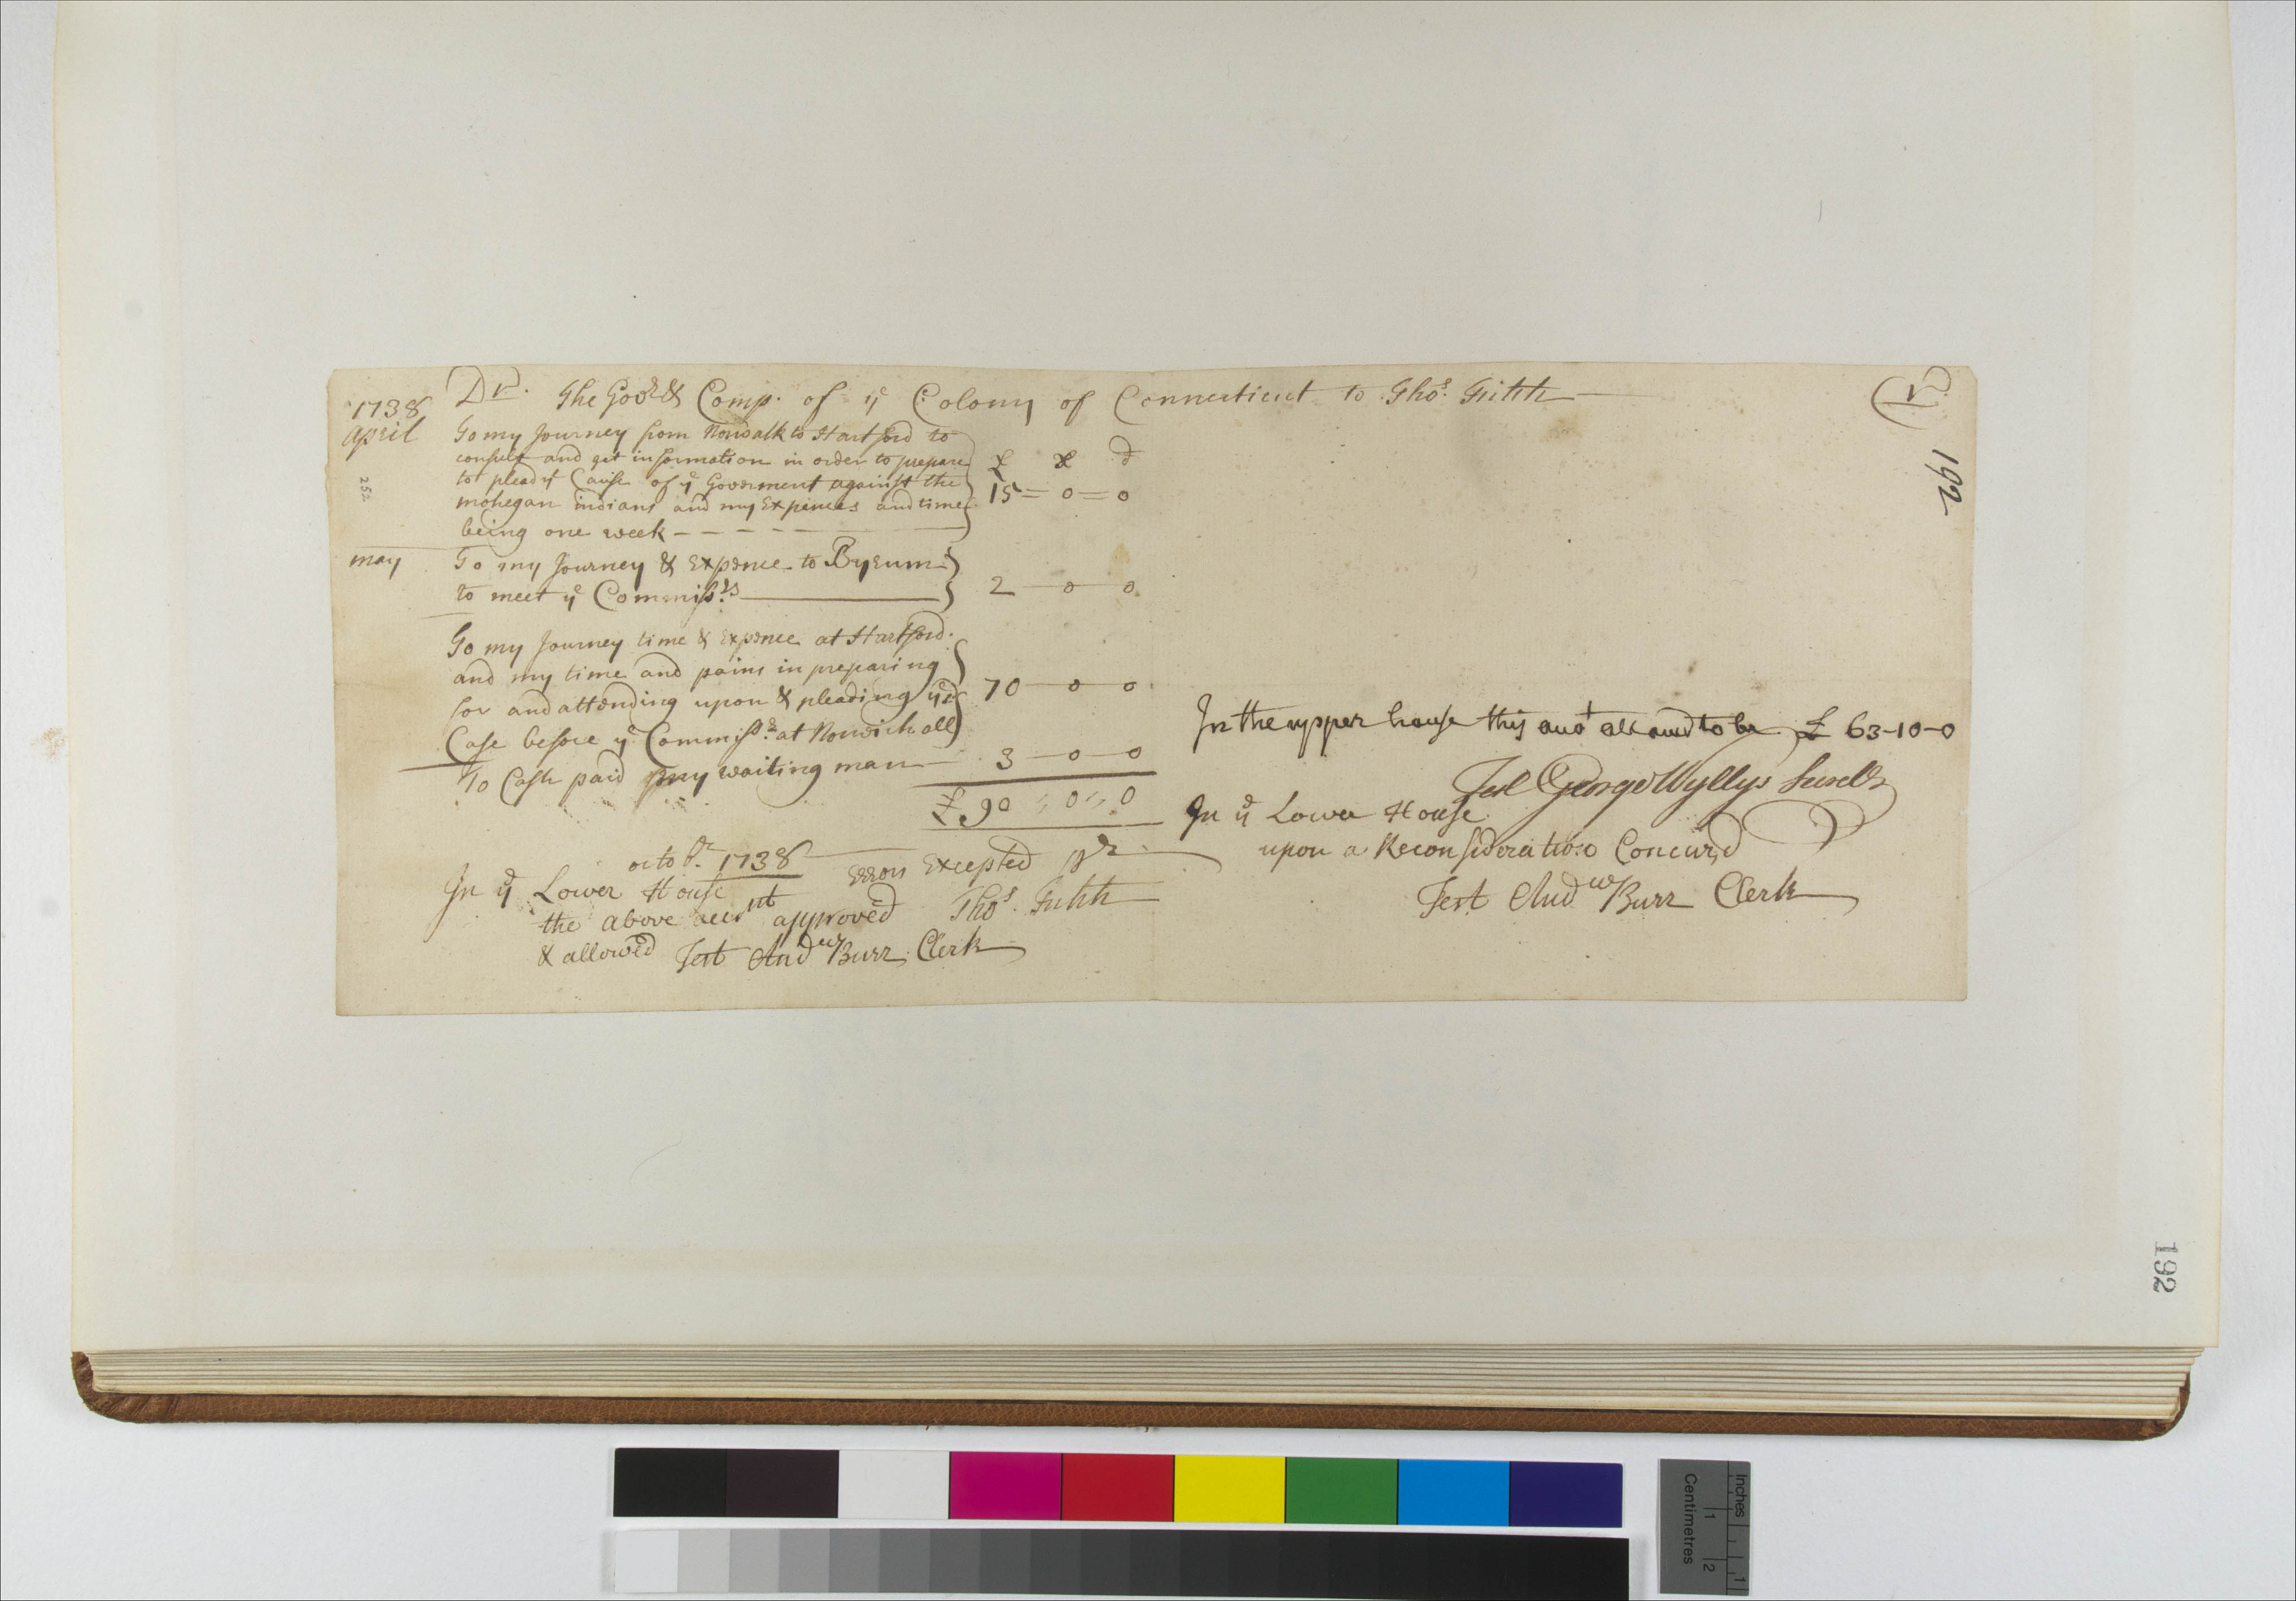 Dr. The Govr & Comp. of ye Colony of Connecticut to Thos. Fitch
1738
April
To my Journey from Norwalk to Hartford to
consult and get information in order to prepare
to plead ye Cause of ye Goverment against the
mohegan indians and my Expences and time
being one week
£ s d
15 = 0 = 0
252
may
To my Journey & Expence to Byrum
to meet ye Commissrs
2 - 0 - 0
To my Journey time & Expence at Hartford
and my time and pains in preparing
for and attending upon & pleading ye sd
Case before ye Commissrs at Norwich all
70 - 0 - 0
To Cash paid my waiting man
3 - 0 - 0
£ 90 0 0
octobr. 1738
Errors Excepted pr
Thos. Fitch
In ye Lower House
the above accompt approved
& allowed Test Andw Burr Clerk
In the upper house this acct allowed to be £ 63-10-0
Test George Wyllys Secrety
In ye Lower House
upon a Reconsideration Concur'd
Test Andw Burr Clerk
192
192
Inches
1
1
Centimetres
2